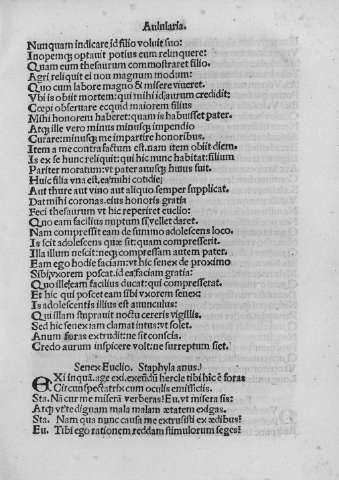 Aulularia.
Nunquam indicare id filio voluit suo:
Inopemq; optauit potius eum relinquere:
Quam eum thesaurum commostraret filio.
Agri reliquit ei non magnum modum:
Quo cum labore magno & misere viueret.
Vbi is obiit mortem: qui mihi id aurum credidit:
Cœpi obseruare ecquid maiorem filius
Mihi honorem haberet: quam is habuisset pater.
Atq; ille vero minus minusq; impendio
Curare: minusq; me impartire honoribus.
Item a me contra factum est. nam item obiit diem.
Is ex se hunc reliquit: qui hic nunc habitat: filium
Pariter moratum: vt pater auusq; huius fuit.
Huic filia vna est. ea mihi cotidie;
Aut thure aut vino aut aliquo semper supplicat.
Dat mihi coronas. eius honoris gratia
Feci thesaurum vt hic reperiret euclio:
Quo eam facilius nuptum si vellet daret.
Nam compressit eam de summo adolescens loco.
Is scit adolescens quæ sit: quam compresserit.
Illa illum nescit: neq; compressam autem pater.
Eam ego hodie faciam: vt hic senex de proximo
Sibi vxorem poscat. id ea faciam gratia:
Quo ille eam facilius ducat: qui compresserat.
Et hic qui poscet eam sibi vxorem senex:
Is adolescentis illius est auunculus:
Qui illam stuprauit noctu cereris vigiliis.
Sed hic senex iam clamat intus: vt solet.
Anum foras extrudit: ne sit conscia.
Credo aurum inspicere volt: ne surreptum siet.
Senex Euclio. Staphyla anus.
Exi inquā. age exi. exeūdū hercle tibi hic ē foras
Circunspectatrix cum oculis emissiciis.
Sta. Nā cur me miserā verberas? Eu. vt misera sis:
Atq; vt te dignam mala malam ætatem exigas.
Sta. Nam qua nunc causa me extrusisti ex ædibus?
Eu. Tibi ego rationem reddam stimulorum seges?